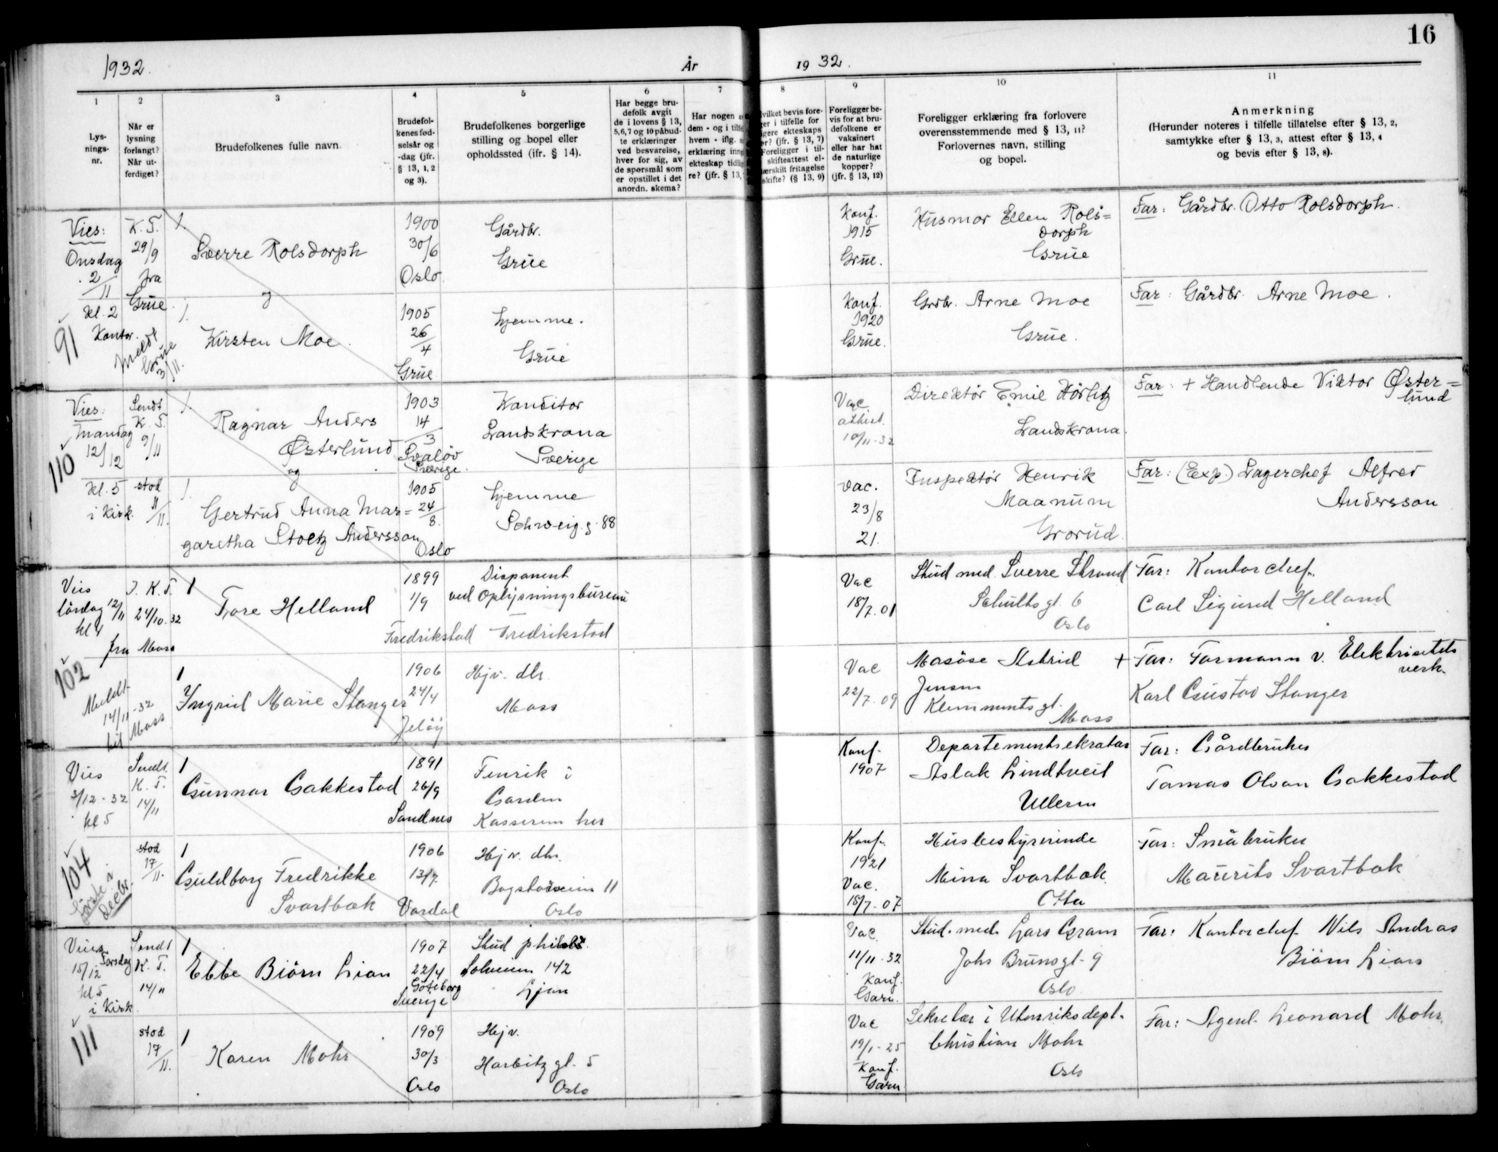 1932.
År
1932.
16
1
2
3
4
5
6
7
8
9
10
11
Lys-
nings-
nr.
Når er
lysning
forlangt?
Når ut-
ferdiget?
Brudefolkenes fulle navn.
Brudefol-
kenes fød-
selsår og
-dag (jfr.
§ 13, 1, 2
og 3).
Brudefolkenes borgerlige
stilling og bopel eller
opholdssted (ifr. § 14).
Har begge bru-
defolk avgit
de i lovens § 13,
5,6,7 og 10 påbud-
te erklæringer
ved besvarelse,
hver for sig, av
de spørsmål som
er opstillet i det
anordn. skema?
Har nogen
dem - og i
hvem - iflg.
erklæring inng
ekteskap tidlig
re? (jfr. § 13,
Foreligger be-
vis for at bru-
defolkene er
vaksinert
eller har hat
de naturlige
kopper?
(jfr. § 13, 12)
Foreligger erklæring fra forlovere
overensstemmende med § 13, 11?
Forlovernes navn, stilling
og bopel.
Anmerkning
(Herunder noteres i tilfelle tillatelse efter § 13, 2,
samtykke efter § 13, 3, attest efter § 13, 4
og bevis efter § 13, 8).
Vies:
Onsdag
2/11
kl. 2
Kontor.
91
Meldt
Grue
3/11.
K. T.
29/9
fra
Grue.
1.
Sverre Rolsdorph
1900
30/6
Oslo
Gårdbr.
Grue
Konf.
1915
Grue.
Husmor Ellen Rols=
dorph
Grue
Far: Gårdbr. Otto Rolsdorph.
og
1.
Kirsten Moe.
1905
26/4
Grue
hjemme.
Grue
Konf.
1920
Grue.
Grdbr. Arne Moe
Grue.
Far: Gårdbr. Arne Moe.
Vies:
mandag
12/12
110
kl. 5
i Kirk.
Sendt
K. T.
9/11
stod
11/11.
1.
Ragnar Anders
Østerlund
1903
14/3
Svaløv
Sverige.
Konditor
Landskrona
Sverige
Vac
attest.
10/11-32
Direktør Emil
Landskrona.
Far: + Handlende Viktor Øster=
lund
og
1.
Gertrud Anna Mar=
garetha Stoltz Andersson
1905
24/8.
Oslo
hjemme
Schweig.g. 88
Vac.
23/8
21.
Inspektør Henrik
Maanum
Grorud.
Far: (Exp.) Lagerchef Alfred
Andersson
Vies
lørdag 12/11
kl 4
102
Meldt
14/11-32
til Moss
K. T.
24/10-32
fra Moss
1
Tore Helland
1899
1/9
Fredrikstad
Disponent
ved Oplysningsbureau
Fredrikstad
Vac
18/7.01
Stud med Sverre Strand
Schultzgt 6
Oslo
Far: Kontorchef
Carl Sigurd Helland
1
Yngrid Marie Stanger
1906
24/4
Jeløy
Hjv. dtr.
Moss
Vac
22/7.09
Massøse Astrid
Jensen
Klemmentsgt.
Moss
+ Far: Formann v. Elektrisitets
verk.
Karl Gustav Stanger
Vies
3/12-32
kl 5
104
Sendt
K. T.
14/11
stod
17/11.
1
Gunnar Gakkestad
1891
26/9
Sandnes
Fenrik i
Garden
Kasernen her
Konf.
1907
Departementsekretær
Aslak Lindtveit
Ullern
Far: Gårdbruker
Tomas Olsen Gakkestad
1
Guldborg Fredrikke
Svartbak
1906
13/7
Vardal
Hjv. dtr.
Bogstadveien 11
Oslo
Konf.
1921
Vac.
18/7-07
Husbestyrerinde
Mina Svartbak
Otta
Far: Småbruker
Maurits Svartbak
Vies
Torsdag
15/12
kl 5
i Kirk.
111
Sendt
K. T.
14/11
stod
17/11.
1
Ebbe Biörn Lian
1907
22/4
Göteborg
Sverige
Stud philol.
Solveien 142
Ljan
Vac
11/11-32
Konf.
Garn.
Stud. med. Lars Gram
Johs Brunsgt. 9
Oslo
Far: Kontorchef Nils Andreas
Biörn Lian
1
Karen Mohr
1909
30/3
Oslo
Hjv.
Harbitzgt. 5
Oslo
Vac
19/1-25
Konf.
Garn
Sekretær i Utenriksdept.
Christian Mohr
Oslo
Far: Agent Leonard Mohr